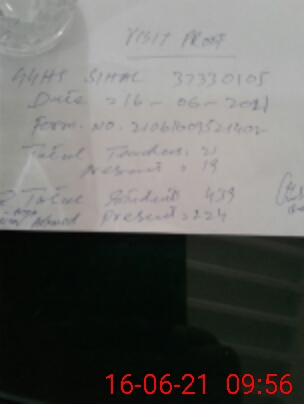 VISIT PROOF
GGHS SIHAL 37330105
Date 216-06-2021
Form. NO. 21061609521402
Total Teachers: 21
present: 19
Total Students 439
Present: 224
16-06-21 09:56